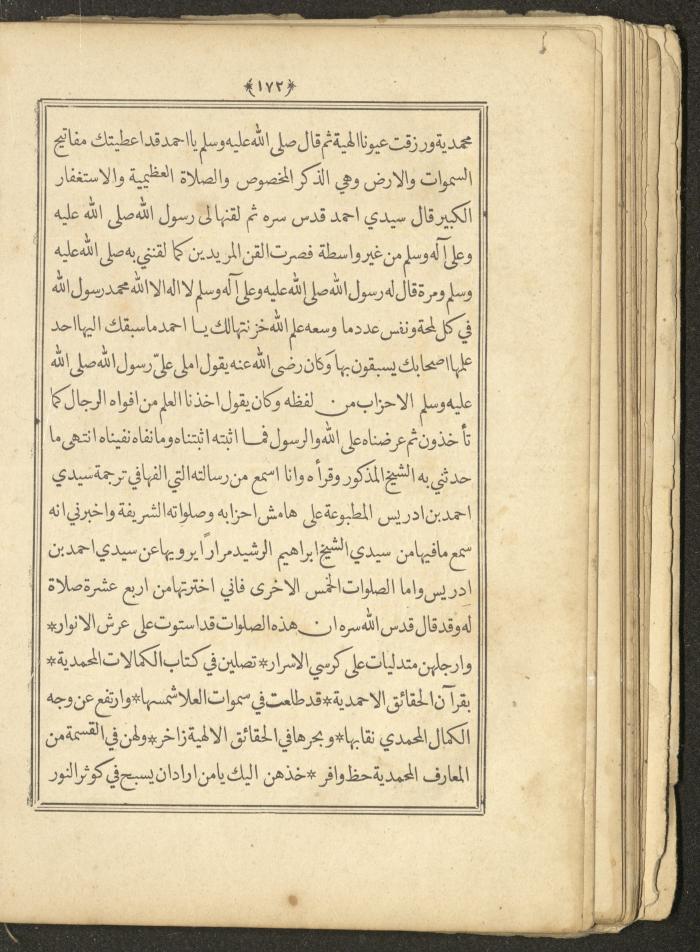 ﴿١٧٢﴾
محمدية ورزقت عيونا الهية ثم قال صلى الله عليه وسلم يا احمد قد اعطيتك مفاتيح
السموات والارض وهي الذكر المخصوص والصلاة العظيمية والاستغفار
الكبير قال سيدي احمد قدس سره ثم لقنها لى رسول الله صلى الله عليه
وعلى آله وسلم من غير واسطة فصرت القن المريدين كما لقنني به صلى الله عليه
وسلم ومرة قال له رسول الله صلى الله عليه وعلى آله وسلم لا اله الا الله محمد رسول الله
في كل لمحة ونفس عدد ما وسعه علم الله خزنتها لك يا احمد ما سبقك اليها احد
علمها اصحابك يسبقون بها وكان رضى الله عنه يقول املى علىّ رسول الله صلى الله
عليه وسلم الاحزاب من لفظه وكان يقول اخذنا العلم من افواه الرجال كما
تأخذون ثم عرضناه على الله والرسول فما اثبته اثبتناه وما نفاه نفيناه انتهى ما
حدثني به الشيخ المذكور وقرأه وانا اسمع من رسالته التي الفها في ترجمة سيدي
احمد بن ادريس المطبوعة على هامش احزابه وصلواته الشريفة واخبرني انه
سمع ما فيها من سيدي الشيخ ابراهيم الرشيد مرارًا يرويها عن سيدي احمد بن
ادريس واما الصلوات الخمس الاخرى فاني اخترتها من اربع عشرة صلاة
له وقد قال قدس الله سره ان هذه الصلوات قد استوت على عرش الانوار*
وارجلهن متدليات على كرسي الاسرار* تصلين في كتاب الكمالات المحمدية*
بقرآن الحقائق الاحمدية* قد طلعت في سموات العلا شمسها* وارتفع عن وجه
الكمال المحمدي نقابها* وبحرها في الحقائق الالهية زاخر* ولهن في القسمة من
المعارف المحمدية حظ وافر* خذهن اليك يامن اراد ان يسبح في كوثر النور